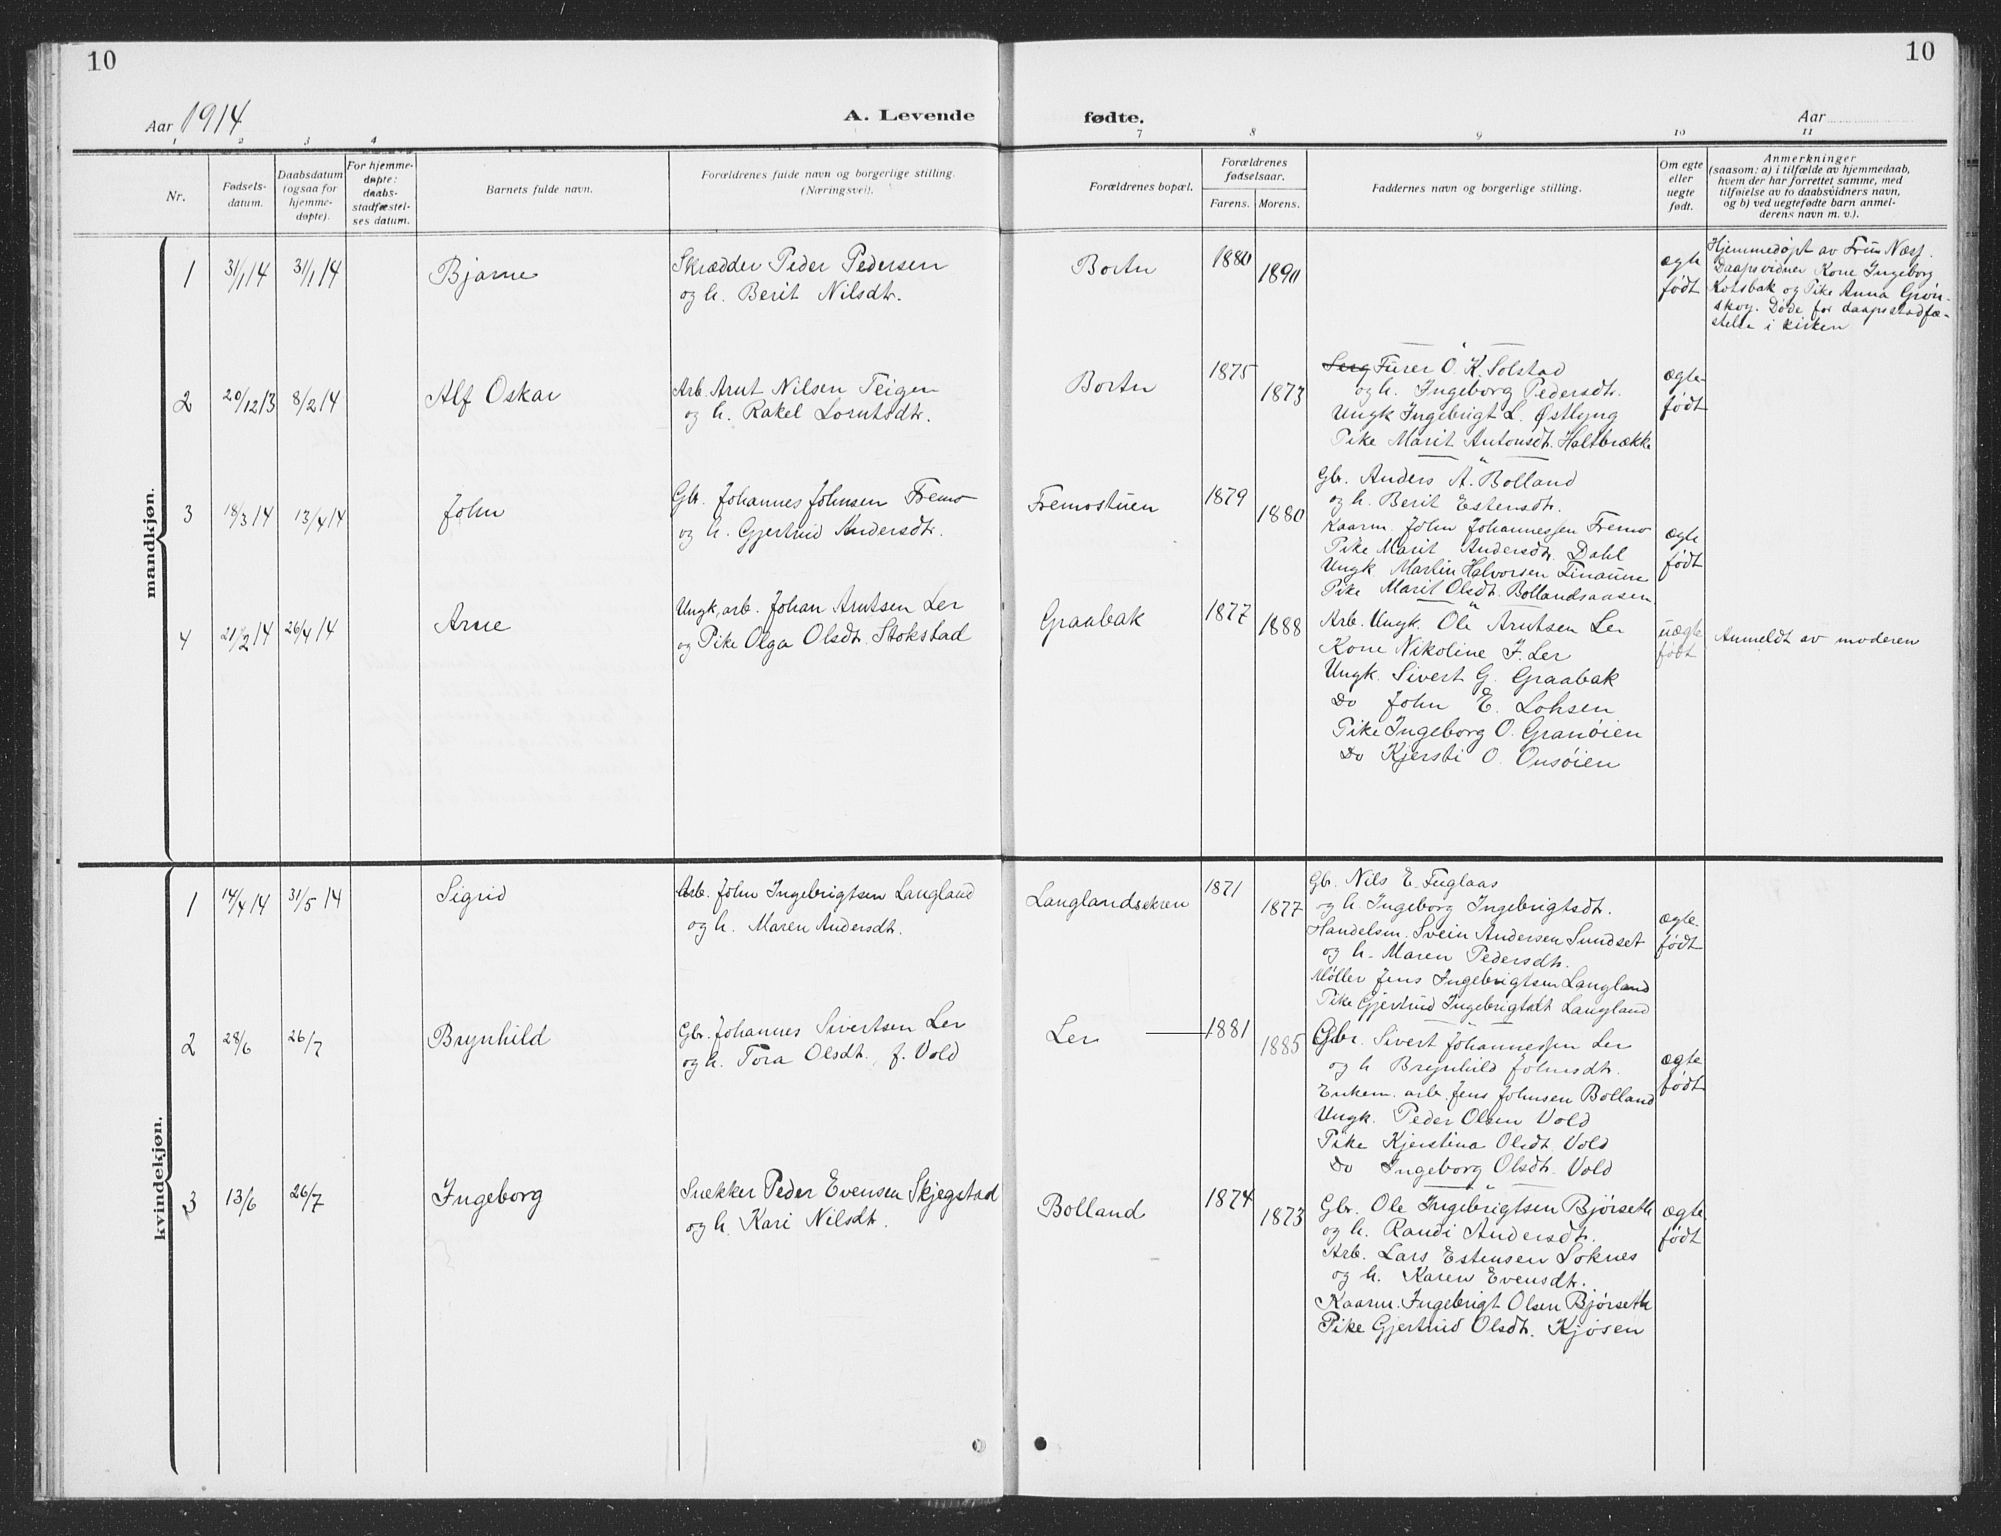 10
10
Aar 1914
A. Levende
fødte.
Aar
1 2 3 4 7 8 9 10 11
Nr.
Fødsels-
datum.
Daabsdatum
(ogsaa for
hjemme-
døpte).
For hjemme-
døpte:
daabs-
stadfæstel-
ses datum.
Barnets fulde navn.
Forældrenes fulde navn og borgerlige stilling.
(Næringsvei).
Forældrenes bopæl.
Forældrenes
fødselsaar.
Farens. Morens.
Faddernes navn og borgerlige stilling.
Om egte
eller
uegte
født.
Anmerkninger
(saasom: a) i tilfælde av hjemmedaab,
hvem der har forrettet samme, med
tilføielse av to daabsvidners navn,
og b) ved uegtefødte barn anmel-
derens navn m. v.).
mandkjøn.
1 31/1 14 31/1 14 Bjarne
Skrædder Peder Pedersen
og h. Berit Nilsdtr.
Borten
1880
1890
ægte
født
Hjemmedøpt av Frue Næss.
Daapsvidner Kone Ingeborg
Kotsbak og Pike Anna Grøn-
skog. Døde før daapsstadfæ-
stelse i kirken
2 20/12 13 8/2 14 Alf Oskar
Arb. Arnt Nilsen Teigen
og h. Rakel Lorntsdtr.
Borten
1875
1873
Serg Furer O. K. Solstad
og h. Ingeborg Pedersdtr.
Ungk Ingebrigt L. Østlyng
Pike Marit Antonsdtr. Haltbrække
ægte-
født
3 18/3 14 13/4 14 John
Gbr. Johannes Johnsen Fremo
og h. Gjertrud Andersdtr.
Fremostuen
1879
1880
Gbr. Anders A. Bolland
og h. Berit Estensdtr.
Kaarm. John Johannessen Fremo
Pike Marit Andersdtr. Dahl
Ungk. Martin Halvorsen
Pike Marit Olsdtr. Bollandsaasen
ægte
født
4 21/2 14 26/4 14 Arne
Ungk. arb. Johan Arntsen Ler
og Pike Olga Olsdtr. Stokstad
Graabak
1877
1888
Arb. Ungk. Ole Arntsen Ler
Kone Nikoline J. Ler
Ungk. Sivert G. Graabak
Do John E. Lohsen
Pike Ingeborg O. Granøien
Do Kjersti O. Onsøien
uægte
født
Anmeldt av moderen
kvindekjøn.
1 14/4 14 31/5 14 Sigrid
Arb. John Ingebrigtsen Langland
og h. Maren Andersdtr.
Langlandsekren
1871
1877
Gbr. Nils E. Fuglaas
og h. Ingeborg Ingebrigtsdtr.
Handelsm. Svein Andersen Sundset
og h. Maren Pedersdtr.
Møller Jens Ingebrigtsen Langland
Pike Gjertrud Ingebrigtsdt Langland
ægte-
født
2 28/6 26/7 Brynhild
Gbr. Johannes Sivertsen Ler
og h. Tora Olsdtr. f. Vold
Ler
1881
1885
Gbr. Sivert Johannessen Ler
og h Brynhild Johnsdtr.
Enkem. arb. Jens Johnsen Bolland
Ungk. Peder Olsen Vold
Pike Kjerstina Olsdtr. Vold
Do Ingeborg Olsdtr. Vold
ægte
født
3 13/6 26/7 Ingeborg
Snekker Peder Evensen Skjegstad
og h. Kari Nilsdtr.
Bolland
1874
1873
Gbr. Ole Ingebrigtsen Bjørseth
og h. Randi Andersdtr.
Arb. Lars Estensen Soknes
og h. Karen Evensdtr.
Kaarm. Ingebrigt Olsen Bjørseth
Pike Gjertrud Olsdtr. Kjøsen
ægte
født